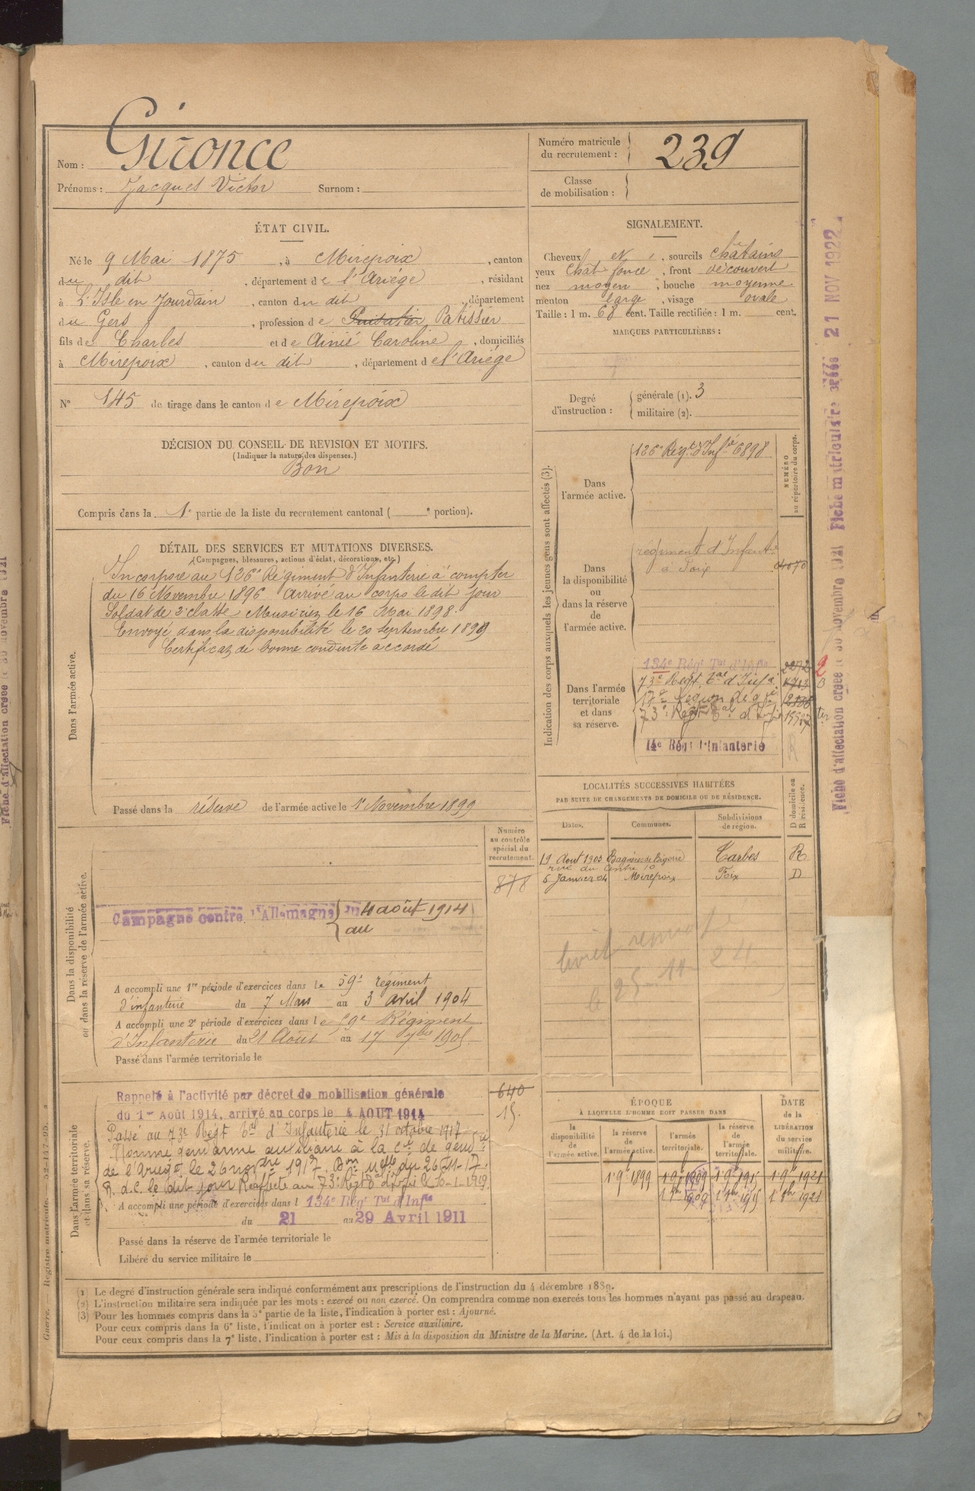 Nom : Gironce
Prénoms : Jacques Victor Surnom :
Numéro matricule du recrutement : 239
Classe de mobilisation :
ÉTAT CIVIL.
Né le 9 Mai 1875, à Mirepoix, canton
du dit, département de l'Ariège, résidant
à L'Isle en Jourdain, canton du dit, département
du Gers, profession de Pâtissier
fils de Charles et de Ainié Caroline, domiciliés
à Mirepoix, canton du dit, département de l'Ariège
N° 145 de tirage dans le canton de Mirepoix
DÉCISION DU CONSEIL DE REVISION ET MOTIFS.
(Indiquer la nature des dispenses.)
Bon
Compris dans la 1e partie de la liste du recrutement cantonal ( e portion).
SIGNALEMENT.
Cheveux et , sourcils châtains
yeux chat foncé, front découvert
nez moyen, bouche moyenne
menton large, visage ovale
Taille : 1 m. 68 cent. Taille rectifiée : 1 m. cent.
MARQUES PARTICULIÈRES :
Degré d'instruction : générale (1). 3
militaire (2).
DÉTAIL DES SERVICES ET MUTATIONS DIVERSES.
(Campagnes, blessures, actions d'éclat, décorations, etc.)
Dans l'armée active.
Incorporé au 126e Régiment d'Infanterie à compter
du 16 Novembre 1896 Arrivé au corps le dit jour
Soldat de 2e classe Musicien le 16 Mai 1898.
Envoyé dans la disponibilité le 20 septembre 1899
Certificat de bonne conduite accordé
Passé dans la réserve de l'armée active le 1er Novembre 1899
Indication des corps auxquels les jeunes gens sont affectés (3).
NUMÉRO au répertoire du corps.
Dans l'armée active. 126e Régt d'Infie 6898
Dans la disponibilité ou dans la réserve de l'armée active. régiment d'Infanterie
à Foix
Dans l'armée territoriale et dans sa réserve. 134e Rég Ter d'Infie
73e Régt tal d'Infie
17e Légion de gie
73e Régt tal d'Infie
14e Régt d'Infanterie
LOCALITÉS SUCCESSIVES HABITÉES
PAR SUITE DE CHANGEMENTS DE DOMICILE OU DE RÉSIDENCE.
Dates. Communes. Subdivisions de région. D domicile ou R résidence.
19 Aout 1903 Bagnères de Bigorre Tarbes R
rue du Centre 10
6 Janvier 04 Mirepoix Foix D
livret renvoi
25-11 24
Numéro au contrôle spécial du recrutement.
878
Dans la disponibilité ou dans la réserve de l'armée active.
Campagne contre l'Allemagne du 4 août 1914
au
A accompli une 1re période d'exercices dans le 59e régiment
d'infanterie du 7 Mars au 3 avril 1904
A accompli une 2e période d'exercices dans le 59e Régiment
d'Infanterie du 21 Août au 17 7bre 1905
Passé dans l'armée territoriale le
Dans l'armée territoriale et dans sa réserve.
640
Rappelé à l'activité par décret de mobilisation générale
du 1er Août 1914, arrivé au corps le 4 AOUT 1914
Passé au 73e Régt tal d'Infanterie le 31 octobre 1917
Nommé gendarme auxiliaire à la Cie de gendie
de l'Ariège le 26 nov 1917
A accompli une période d'exercices dans l 134e Rég Ter d'Infie
du 21 au 29 Avril 1911
Passé dans la réserve de l'armée territoriale le
Libéré du service militaire le
ÉPOQUE
À LAQUELLE L'HOMME DOIT PASSER DANS
la disponibilité de l'armée active. la réserve de l'armée active. l'armée territoriale. la réserve de l'armée territoriale.
DATE de la LIBÉRATION du service militaire.
1er 9bre 1899 1er 9bre 1909 1er 9bre 1915 1er 9bre 1921
(1) Le degré d'instruction générale sera indiqué conformément aux prescriptions de l'instruction du 4 décembre 1889.
(2) L'instruction militaire sera indiquée par les mots : exercé ou non exercé. On comprendra comme non exercés tous les hommes n'ayant pas passé au drapeau.
(3) Pour les hommes compris dans la 5e partie de la liste, l'indication à porter est : Ajourné.
Pour ceux compris dans la 6e liste, l'indication à porter est : Service auxiliaire.
Pour ceux compris dans la 7e liste, l'indication à porter est : Mis à la disposition du Ministre de la Marine. (Art. 4 de la loi.)
Fiche d'affectation créée le 30 novembre 1921 Fiche matriculaire créée 21 NOV 1922